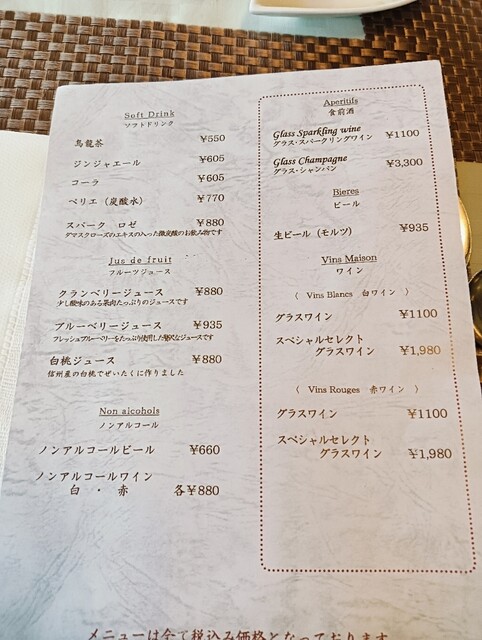 Soft Drink
ソフトドリンク
烏龍茶 ¥550
ジンジャエール ¥605
コーラ ¥605
ペリエ（炭酸水） ¥770
スパーク ロゼ ¥880
ダマスクローズのエキスの入った微炭酸のお飲み物です
Jus de fruit
フルーツジュース
クランベリージュース ¥880
少し酸味のある果肉たっぷりのジュースです
ブルーベリージュース ¥935
フレッシュブルーベリーをたっぷり使用した贅沢なジュースです
白桃ジュース ¥880
信州産の白桃でぜいたくに作りました
Non alcohols
ノンアルコール
ノンアルコールビール ¥660
ノンアルコールワイン
白 ・ 赤 各¥880
Aperitifs
食前酒
Glass Sparkling wine ¥1100
グラス・スパークリングワイン
Glass Champagne ¥3,300
グラス・シャンパン
Bieres
ビール
生ビール（モルツ） ¥935
Vins Maison
ワイン
〈 Vins Blancs 白ワイン 〉
グラスワイン ¥1100
スペシャルセレクト
グラスワイン ¥1,980
〈 Vins Rouges 赤ワイン 〉
グラスワイン ¥1100
スペシャルセレクト
グラスワイン ¥1,980
メニューは全て税込み価格となっております